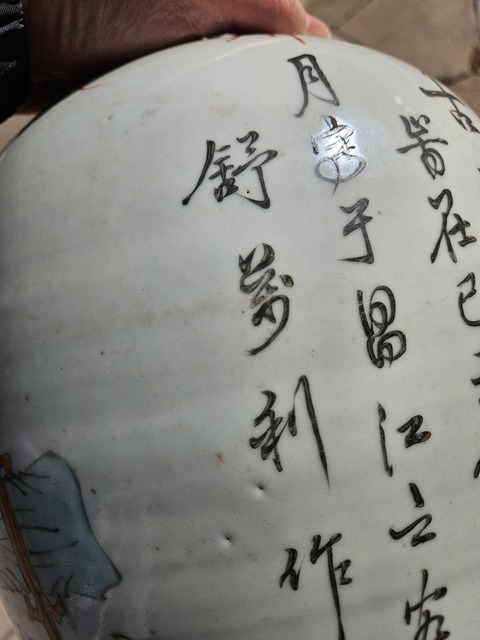 古
旹在己
月寫于昌江之客
舒萬利作